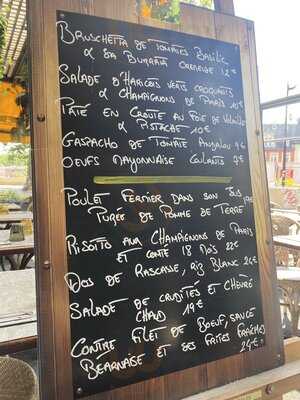 Bruschetta de Tomates Basilic
& sa Burrata Crémeuse 12€
Salade d'Haricots verts croquants
& Champignons de Paris 10€
Pâté en Croûte au Foie de Volaille
& Pistache 10€
Gaspacho de Tomate Andalou 9€
Oeufs Mayonnaise Coulants 7€
Poulet Fermier dans son Jus
Purée de Pomme de Terre 19€
Risotto aux Champignons de Paris
et Comté 18 Mois 22€
Dos de Rascasse, Riz Blanc 24€
Salade de Crudités et Chèvre
Chaud 19€
Contre Filet de Boeuf, Sauce
Béarnaise et ses Frites Fraîches
24€